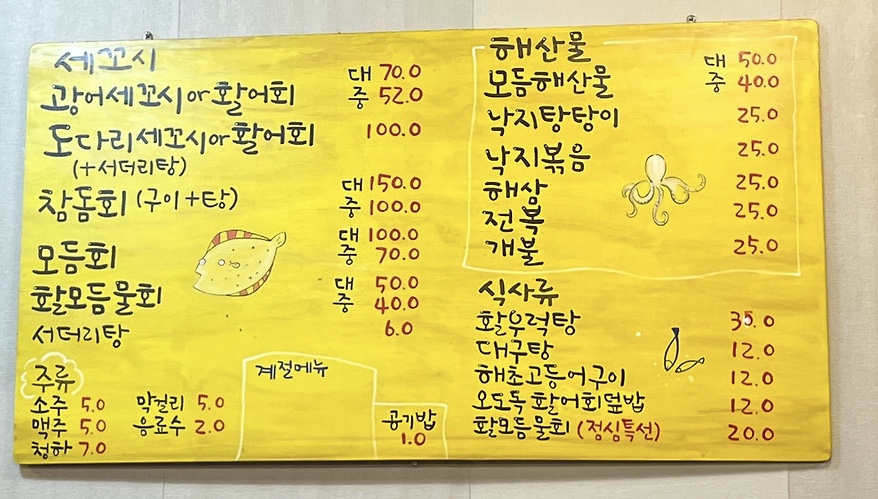 세꼬시
광어세꼬시or활어회 대 70.0
중 52.0
도다리세꼬시or활어회 100.0
(+서더리탕)
참돔회 (구이+탕) 대 150.0
중 100.0
모듬회 대 100.0
중 70.0
활모듬물회 대 50.0
중 40.0
서더리탕 6.0
주류
소주 5.0 막걸리 5.0
맥주 5.0 음료수 2.0
청하 7.0
계절메뉴
공기밥
1.0
해산물
모듬해산물 대 50.0
중 40.0
낙지탕탕이 25.0
낙지볶음 25.0
해삼 25.0
전복 25.0
개불 25.0
식사류
활우럭탕 35.0
대구탕 12.0
해초고등어구이 12.0
오도독활어회덮밥 12.0
활모듬물회 (점심특선) 20.0